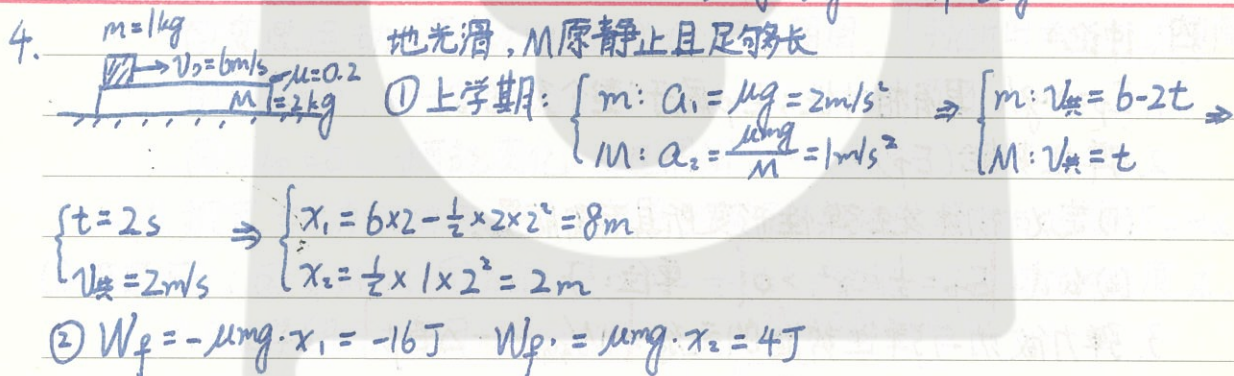 4. m=1kg 地光滑，M原静止且足够长
→v₀=6m/s μ=0.2
M =2kg
①上学期： { m: a₁=μg=2m/s² M: a₂=μmg/M=1m/s² ⇒ { m: v共=6-2t M: v共=t ⇒
{ t=2s v共=2m/s ⇒ { x₁=6×2-½×2×2²=8m x₂=½×1×2²=2m
② Wf=-μmg·x₁=-16J Wf'=μmg·x₂=4J